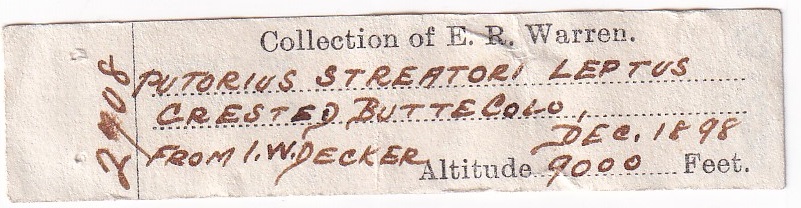 Collection of E. R. Warren.
PUTORIUS STREATORI LEPTUS
CRESTED BUTTE COLO,
DEC. 1898
FROM I.W. DECKER
Altitude 9000 Feet.